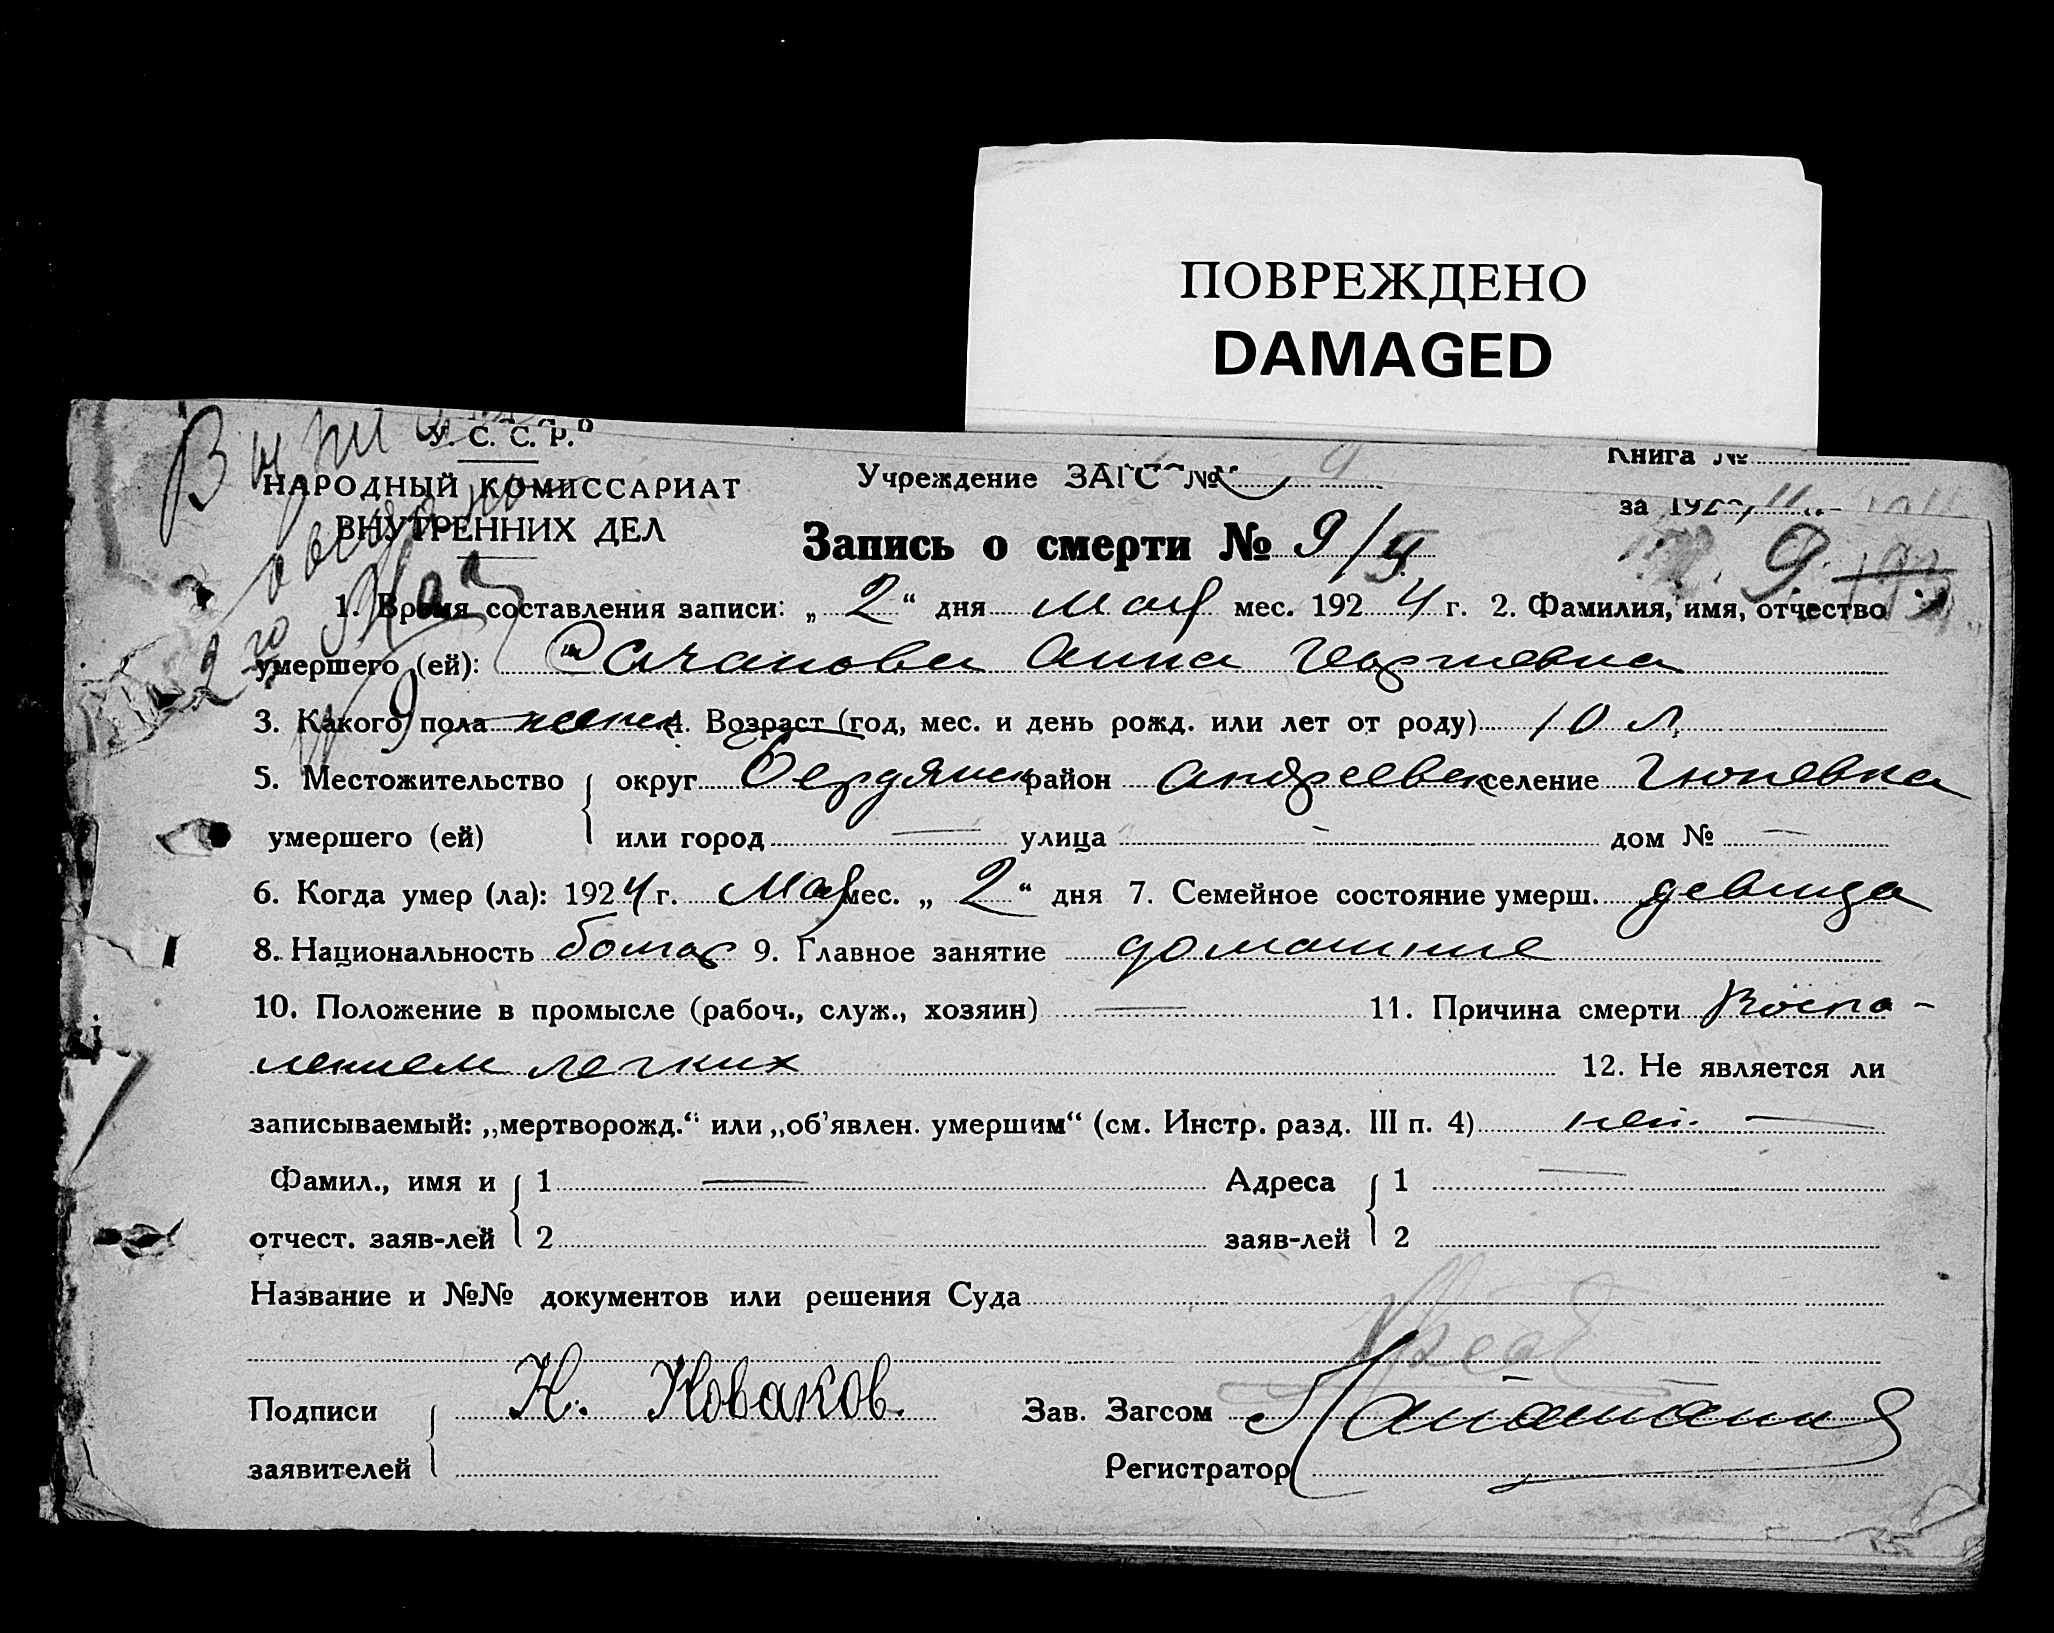 ПОВРЕЖДЕНО
DAMAGED
У. С. С. Р.
НАРОДНЫЙ КОМИССАРИАТ
ВНУТРЕННИХ ДЕЛ
Учреждение ЗАГС №
Книга №
за 192
Запись о смерти № 9/
1. Время составления записи: „ 2 “ дня мая мес. 1924 г. 2. Фамилия, имя, отчество
умершего (ей): Анна Георгиевна
3. Какого пола женск 4. Возраст (год, мес. и день рожд. или лет от роду) 10 л.
5. Местожительство округ Бердянск район Андреевск селение Гюневка
умершего (ей) или город — улица — дом № —
6. Когда умер (ла): 1924 г. Мая мес. „ 2 “ дня 7. Семейное состояние умерш. девица
8. Национальность болгар 9. Главное занятие домашние
10. Положение в промысле (рабоч., служ., хозяин) — 11. Причина смерти Воспа-
лением легких 12. Не является ли
записываемый: „мертворожд.“ или „об’явлен. умершим“ (см. Инстр. разд. III п. 4) нет. —
Фамил., имя и 1 — Адреса 1 —
отчест. заяв-лей 2 заяв-лей 2
Название и №№ документов или решения Суда
Подписи Н. Новаков. Зав. Загсом
заявителей Регистратор